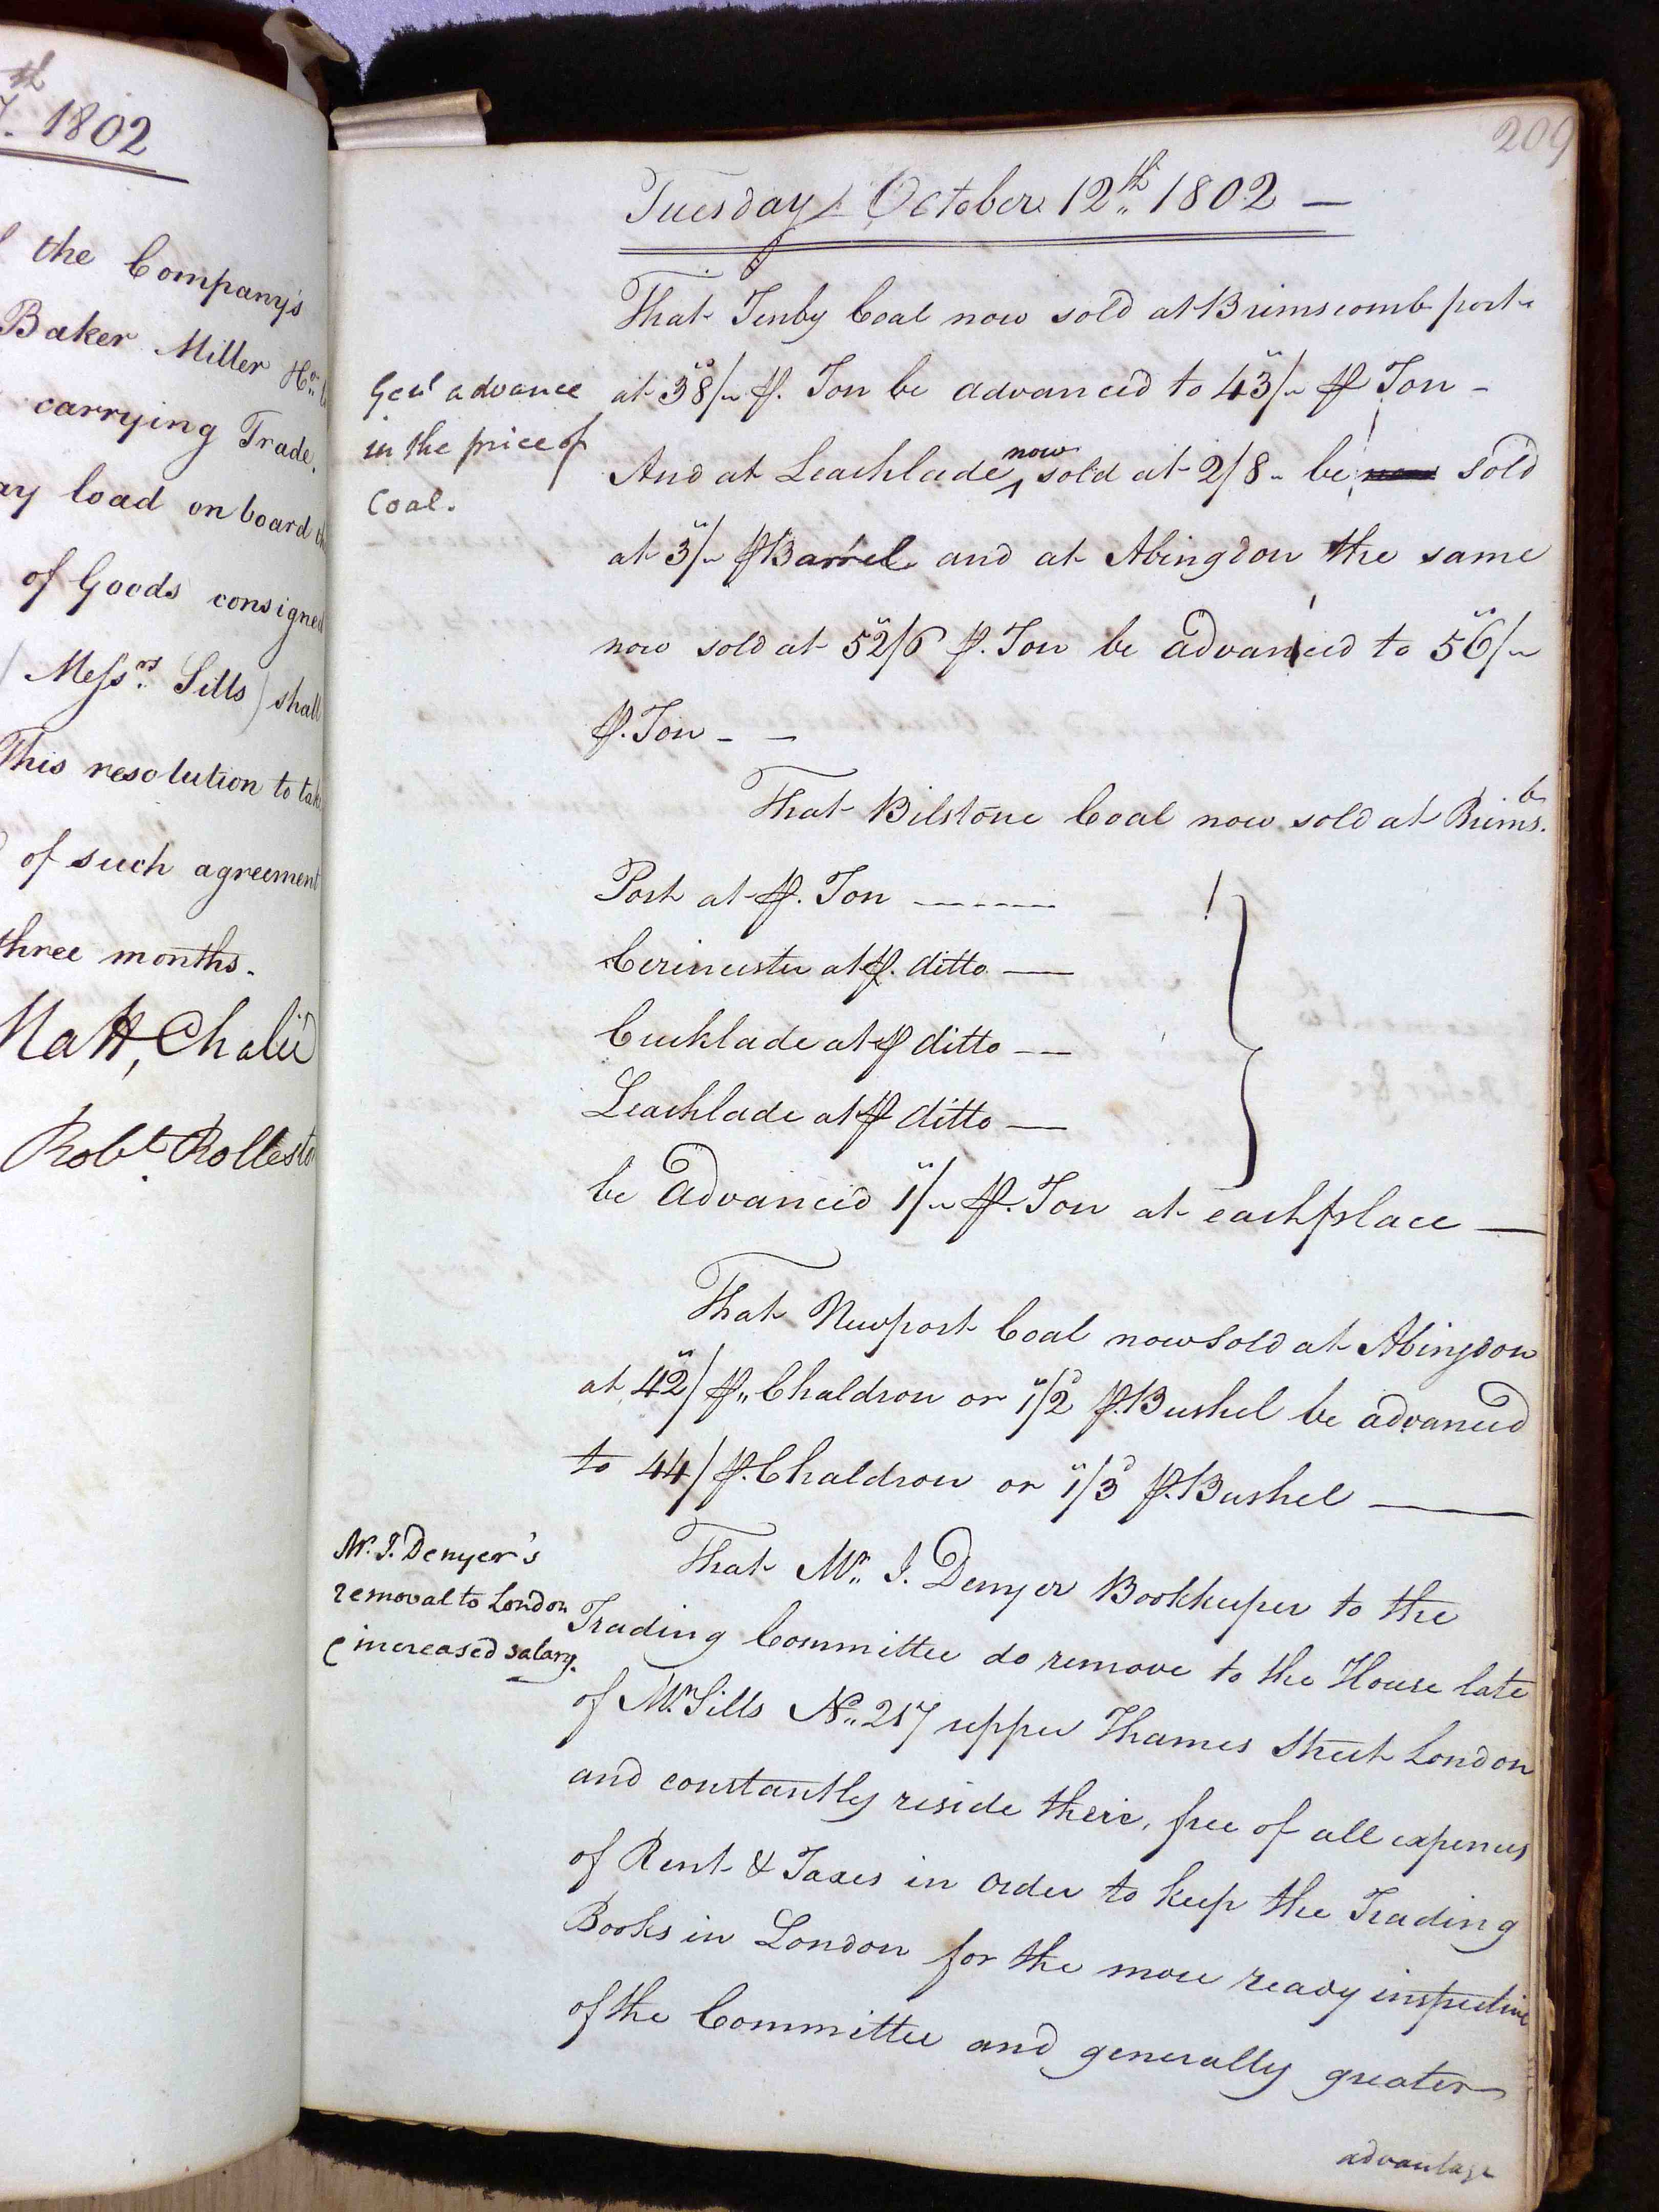 th
1802
the Company's
Baker Miller Ho.
carrying Trade.
load on board
of Goods consigned
Messrs. Sills) shall
This resolution to
of such agreement
three months.
Matt, Chalié
Robt. Rollesto
209
Tuesday October 12th 1802 —
That Tenby Coal now sold at Brimscomb port
Genl advance
in the price of
Coal.
at 38/- p. Ton be advanced to 43/- p Ton -
And at Leachlade now sold at 2/8 - be now sold
at 3/- p Barrel and at Abingdon the same
now sold at 52/6 p. Ton be advanced to 56/-
p. Ton - -
That Bilstone Coal now sold at Brims.b
Port at p. Ton ------
Cirincester at p. ditto —
Cricklade at p ditto —
Leachlade at p ditto —
be advanced 1/- p. Ton at each place —
That Newport Coal now sold at Abingdon
at 42/ p. Chaldron or 1/2 p. Bushel be advanced
to 44/ p. Chaldron or 1/3 p. Bushel —
Mr. J. Denyer's
removal to London
& increased salary.
That Mr. J. Denyer Bookkeeper to the
Trading Committee do remove to the House late
of Mr. Sills No. 217 upper Thames Street London
and constantly reside there, free of all expences
of Rent & Taxes in order to keep the Trading
Books in London for the more ready inspection
of the Committee and generally greater
advantage